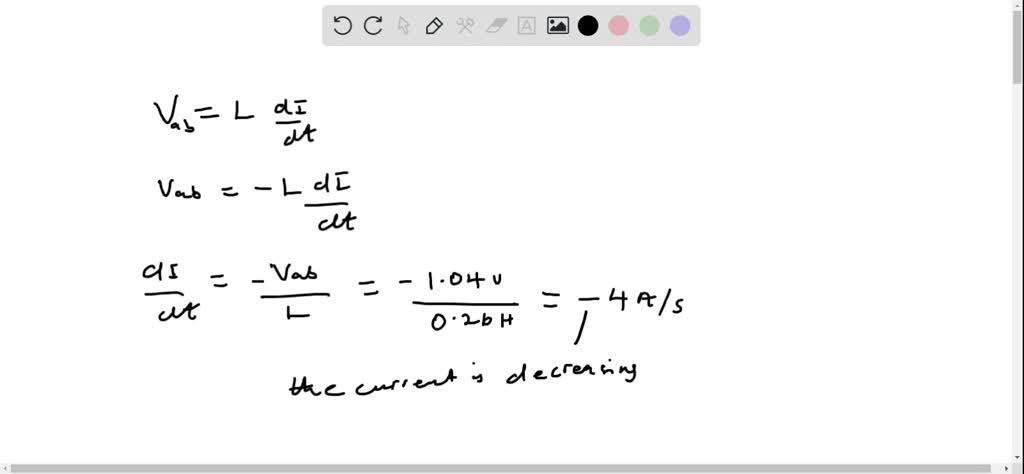 Vab = L dI/dt
Vab = - L dI/dt
dI/dt = - Vab/L = - 1.04 v/0.26 H = - 4 A/s
the current is decreasing